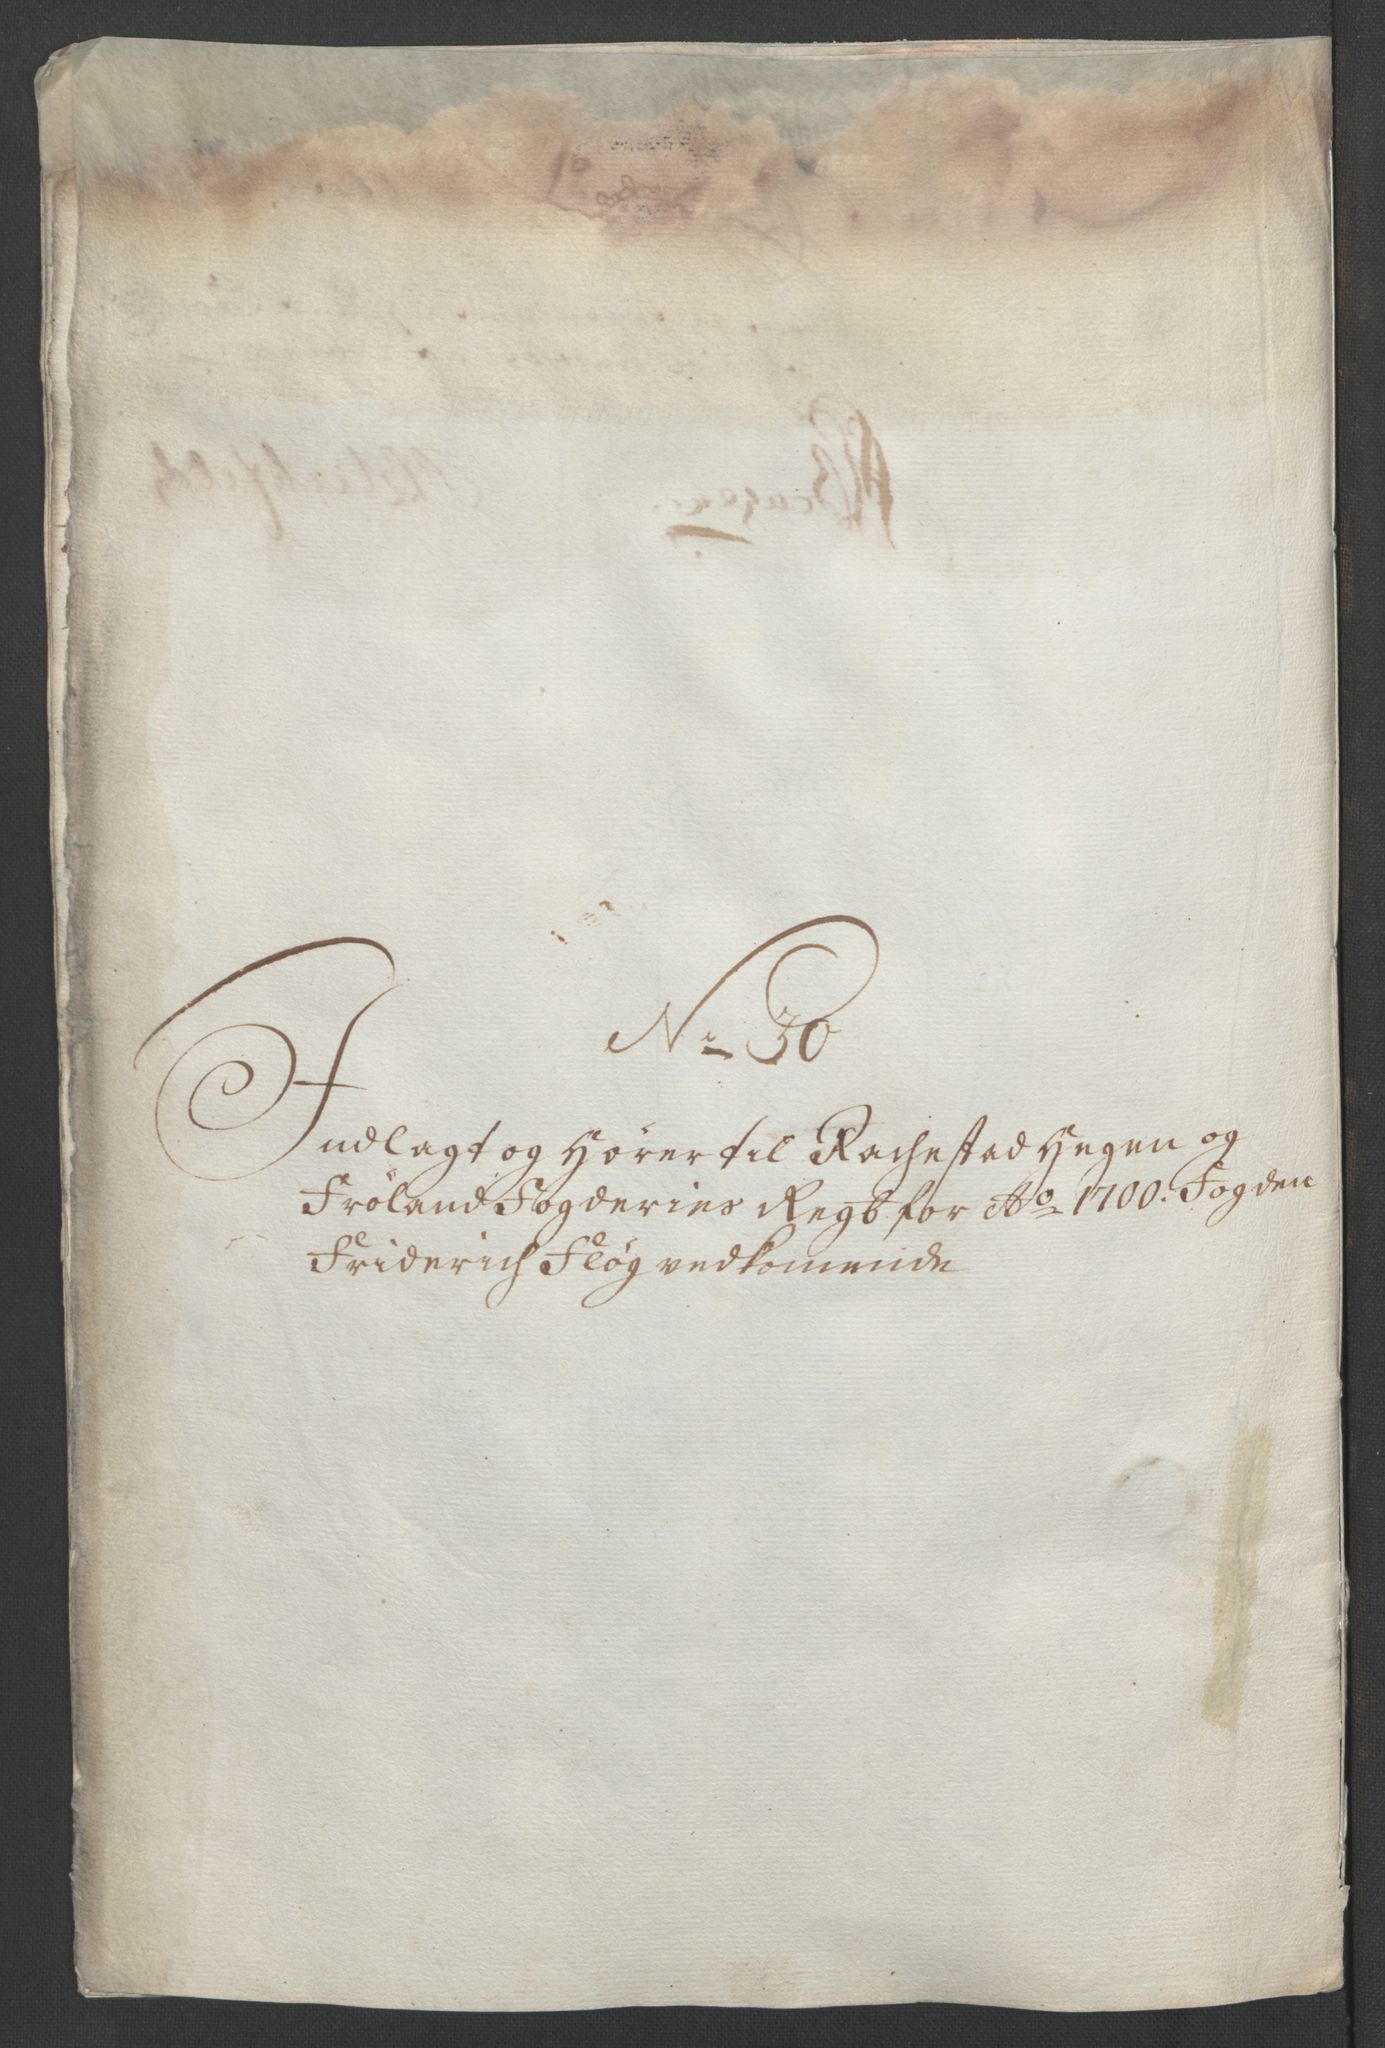 No 30
Indlagt og Hører til Rachestad Heggen og
Frøland Fogderies Regsb for Ao 1700. Fogden
Friderich Fløg vedkommende